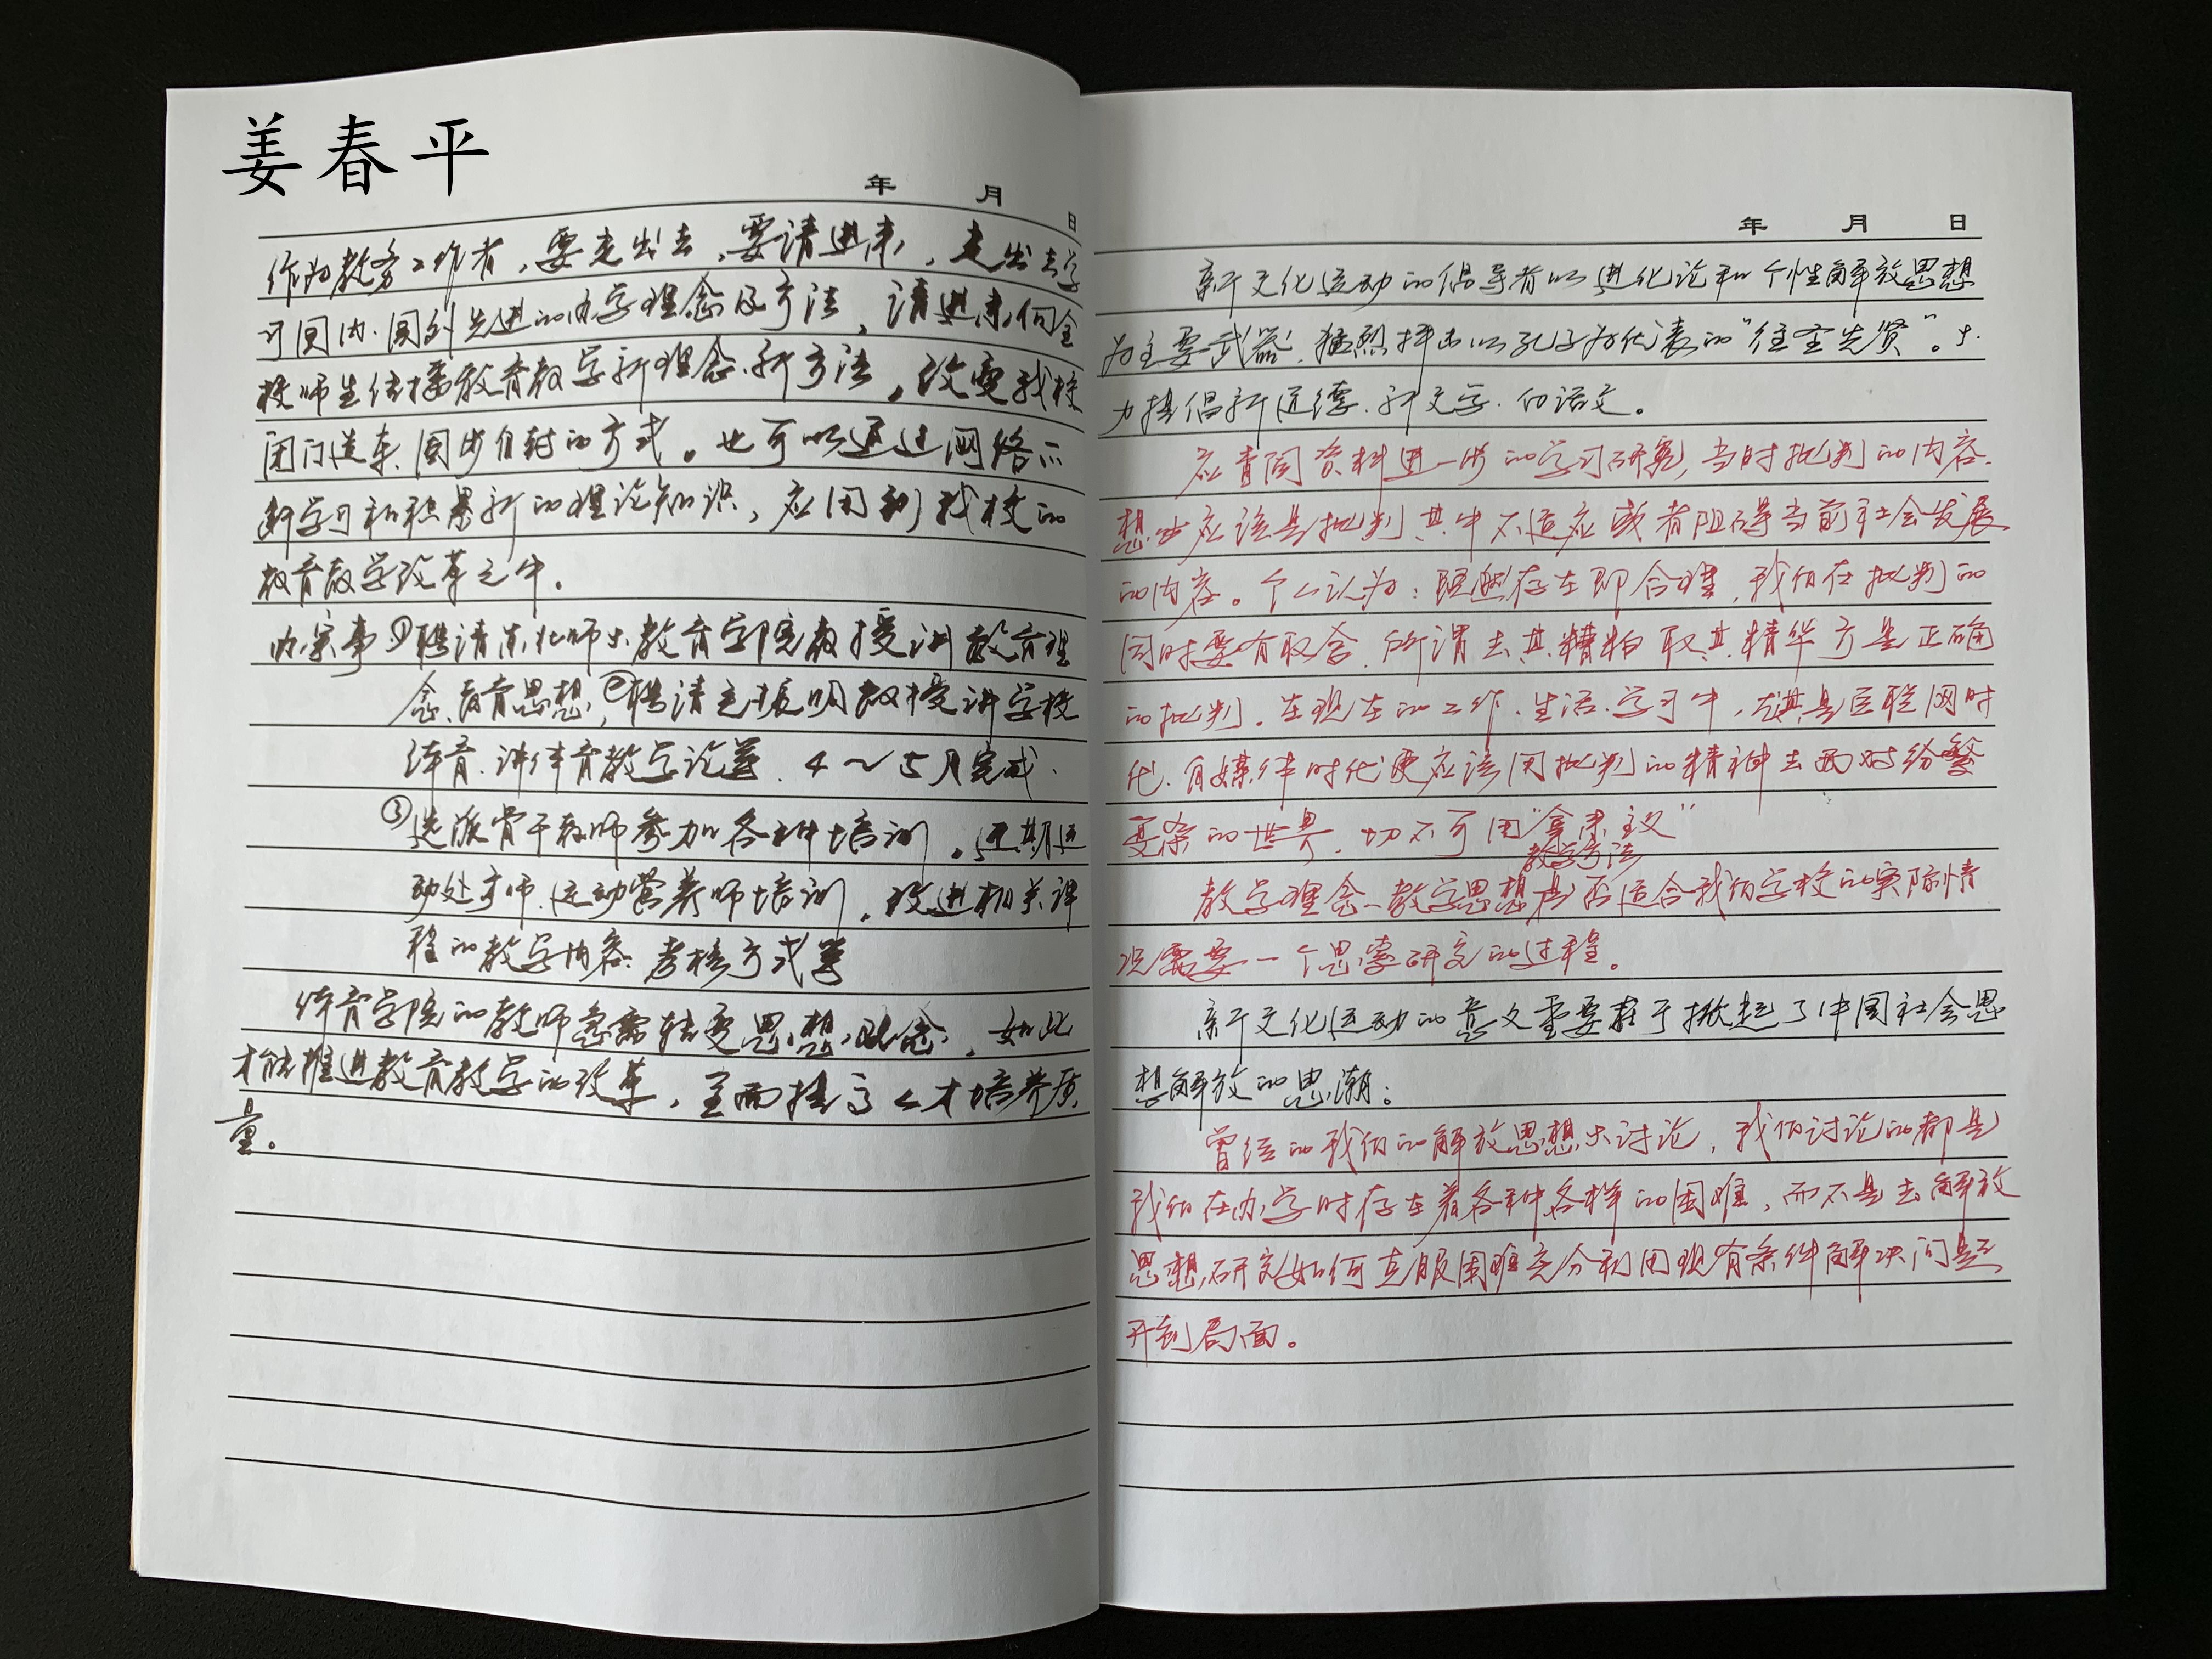 姜春平
年 月 日
作为教务工作者，要走出去，要请进来，走出去学
习国内、国外先进的办学理念及方法，请进来向全
校师生传播教育教学新理念、新方法，改变我校
闭门造车、固步自封的方式。也可以通过网络不
断学习和积累新的理论知识，应用到我校的
教育教学改革之中。
办实事①聘请东北师大教育学院教授讲教育理
念、教育思想，②聘请 振明教授讲学校
体育、讲体育教学论等、4～5月完成、
③选派骨干教师参加各种培训，近期运
动处方师、运动营养师培训，改进相关课
程的教学内容、考核方式等
体育学院的教师急需转变思想观念，如此
才能推进教育教学的改革，全面提高人才培养质
量。
年 月 日
新文化运动的倡导者以进化论和个性解放思想
为主要武器，猛烈抨击以孔子为代表的“往圣先贤”。大
力提倡新道德、新文学、白话文。
应查阅资料进一步的学习研究，当时批判的内容、
想必应该是批判其中不适应或者阻碍当前社会发展
的内容。个人认为：既然存在即合理，我们在批判的
同时要有取舍，所谓去其糟粕取其精华方是正确
的批判。在现在的工作、生活、学习中，尤其是互联网时
代、自媒体时代更应该用批判的精神去面对纷繁
复杂的世界，切不可用“拿来主义”
教学方法
教学理念、教学思想是否适合我们学校的实际情
况需要一个思索研究的过程。
新文化运动的意义重要在于掀起了中国社会思
想解放的思潮：
曾经的我们的解放思想大讨论，我们讨论的都是
我们在办学时存在着各种各样的困难，而不是去解放
思想，研究如何克服困难充分利用现有条件解决问题
开创局面。